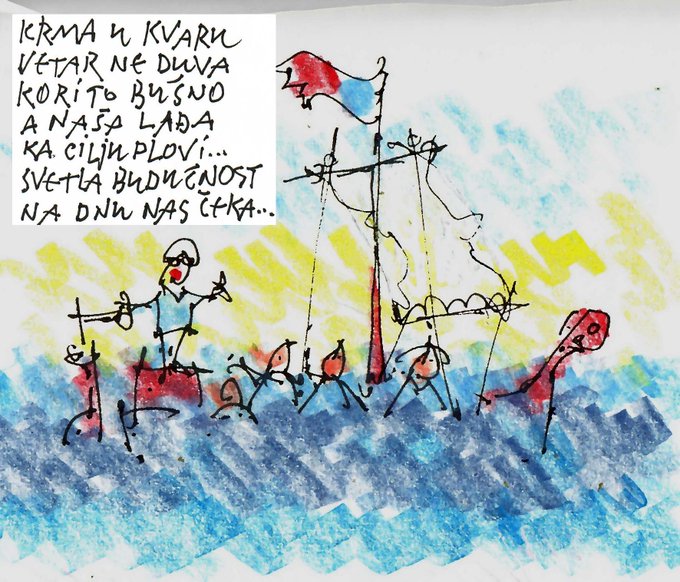 KRMA U KVARU
VETAR NE DUVA
KORITO BUŠNO
A NAŠA LAĐA
KA CILJU PLOVI...
SVETLA BUDUĆNOST
NA DNU NAS ČEKA...